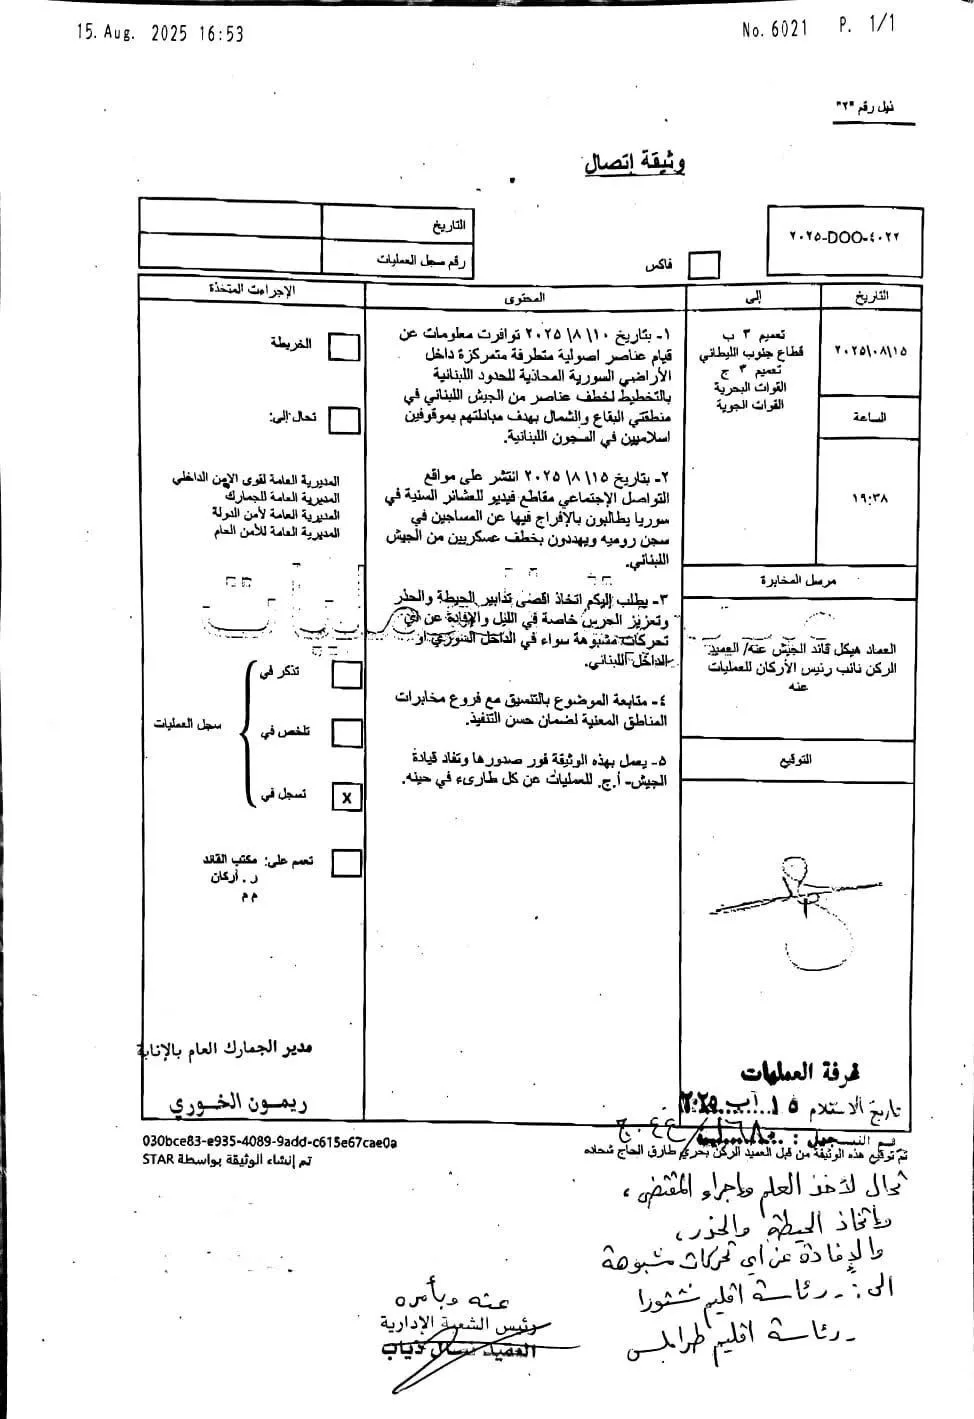 15. Aug. 2025 16:53
No. 6021 P. 1/1
ذيل رقم "٢"
وثيقة إتصال
٢٠٢٥-DOO-٤٠٢٢
فاكس
التاريخ
رقم سجل العمليات
التاريخ
إلى
المحتوى
الإجراءت المتخذة
٢٠٢٥\٠٨\١٥
الساعة
١٩:٣٨
تعميم ٣ ب
قطاع جنوب الليطاني
تعميم ٣ ج
القوات البحرية
القوات الجوية
مرسل المخابرة
العماد هيكل قائد الجيش عنه/ العميد
الركن نائب رئيس الأركان للعمليات
عنه
التوقيع
١- بتاريخ ١٠\ ٨\ ٢٠٢٥ توافرت معلومات عن
قيام عناصر اصولية متطرفة متمركزة داخل
الأراضي السورية المحاذية للحدود اللبنانية
بالتخطيط لخطف عناصر من الجيش اللبناني في
منطقتي البقاع والشمال بهدف مبادلتهم بموقوفين
اسلاميين في السجون اللبنانية.
٢- بتاريخ ١٥\ ٨\ ٢٠٢٥ انتشر على مواقع
التواصل الإجتماعي مقاطع فيديو للعشائر السنية في
سوريا يطالبون بالإفراج فيها عن المساجين في
سجن روميه ويهددون بخطف عسكريين من الجيش
اللبناني.
٣- يطلب إليكم اتخاذ اقصى تدابير الحيطة والحذر
وتعزيز الحرس خاصة في الليل والإفادة عن أي
تحركات مشبوهة سواء في الداخل السوري او
الداخل اللبناني.
٤- متابعة الموضوع بالتنسيق مع فروع مخابرات
المناطق المعنية لضمان حسن التنفيذ.
٥- يعمل بهذه الوثيقة فور صدورها وتفاد قيادة
الجيش- أ.ج. للعمليات عن كل طارىء في حينه.
الخريطة
تحال إلى:
المديرية العامة لقوى الامن الداخلي
المديرية العامة للجمارك
المديرية العامة لأمن الدولة
المديرية العامة للأمن العام
تذكر في
تلخص في
سجل العمليات
تسجل في
X
تعمم على: مكتب القائد
ر . أركان
م م
مدير الجمارك العام بالإنابة
ريمون الخوري
غرفة العمليات
تاريخ الاستلام ١٥ آب ٢٠٢٥
تم توقيع هذه الوثيقة من قبل العميد الركن بحري طارق الحاج شحاده
030bce83-e935-4089-9add-c615e67cae0a
تم إنشاء الوثيقة بواسطة STAR
تحال لأخذ العلم وإجراء المقتضى،
واتخاذ الحيطة والحذر،
والإفادة عن أي تحركات مشبوهة
الى: - رئاسة اقليم شتورا
- رئاسة اقليم طرابلس
عنه وبأمره
رئيس الشعبة الإدارية